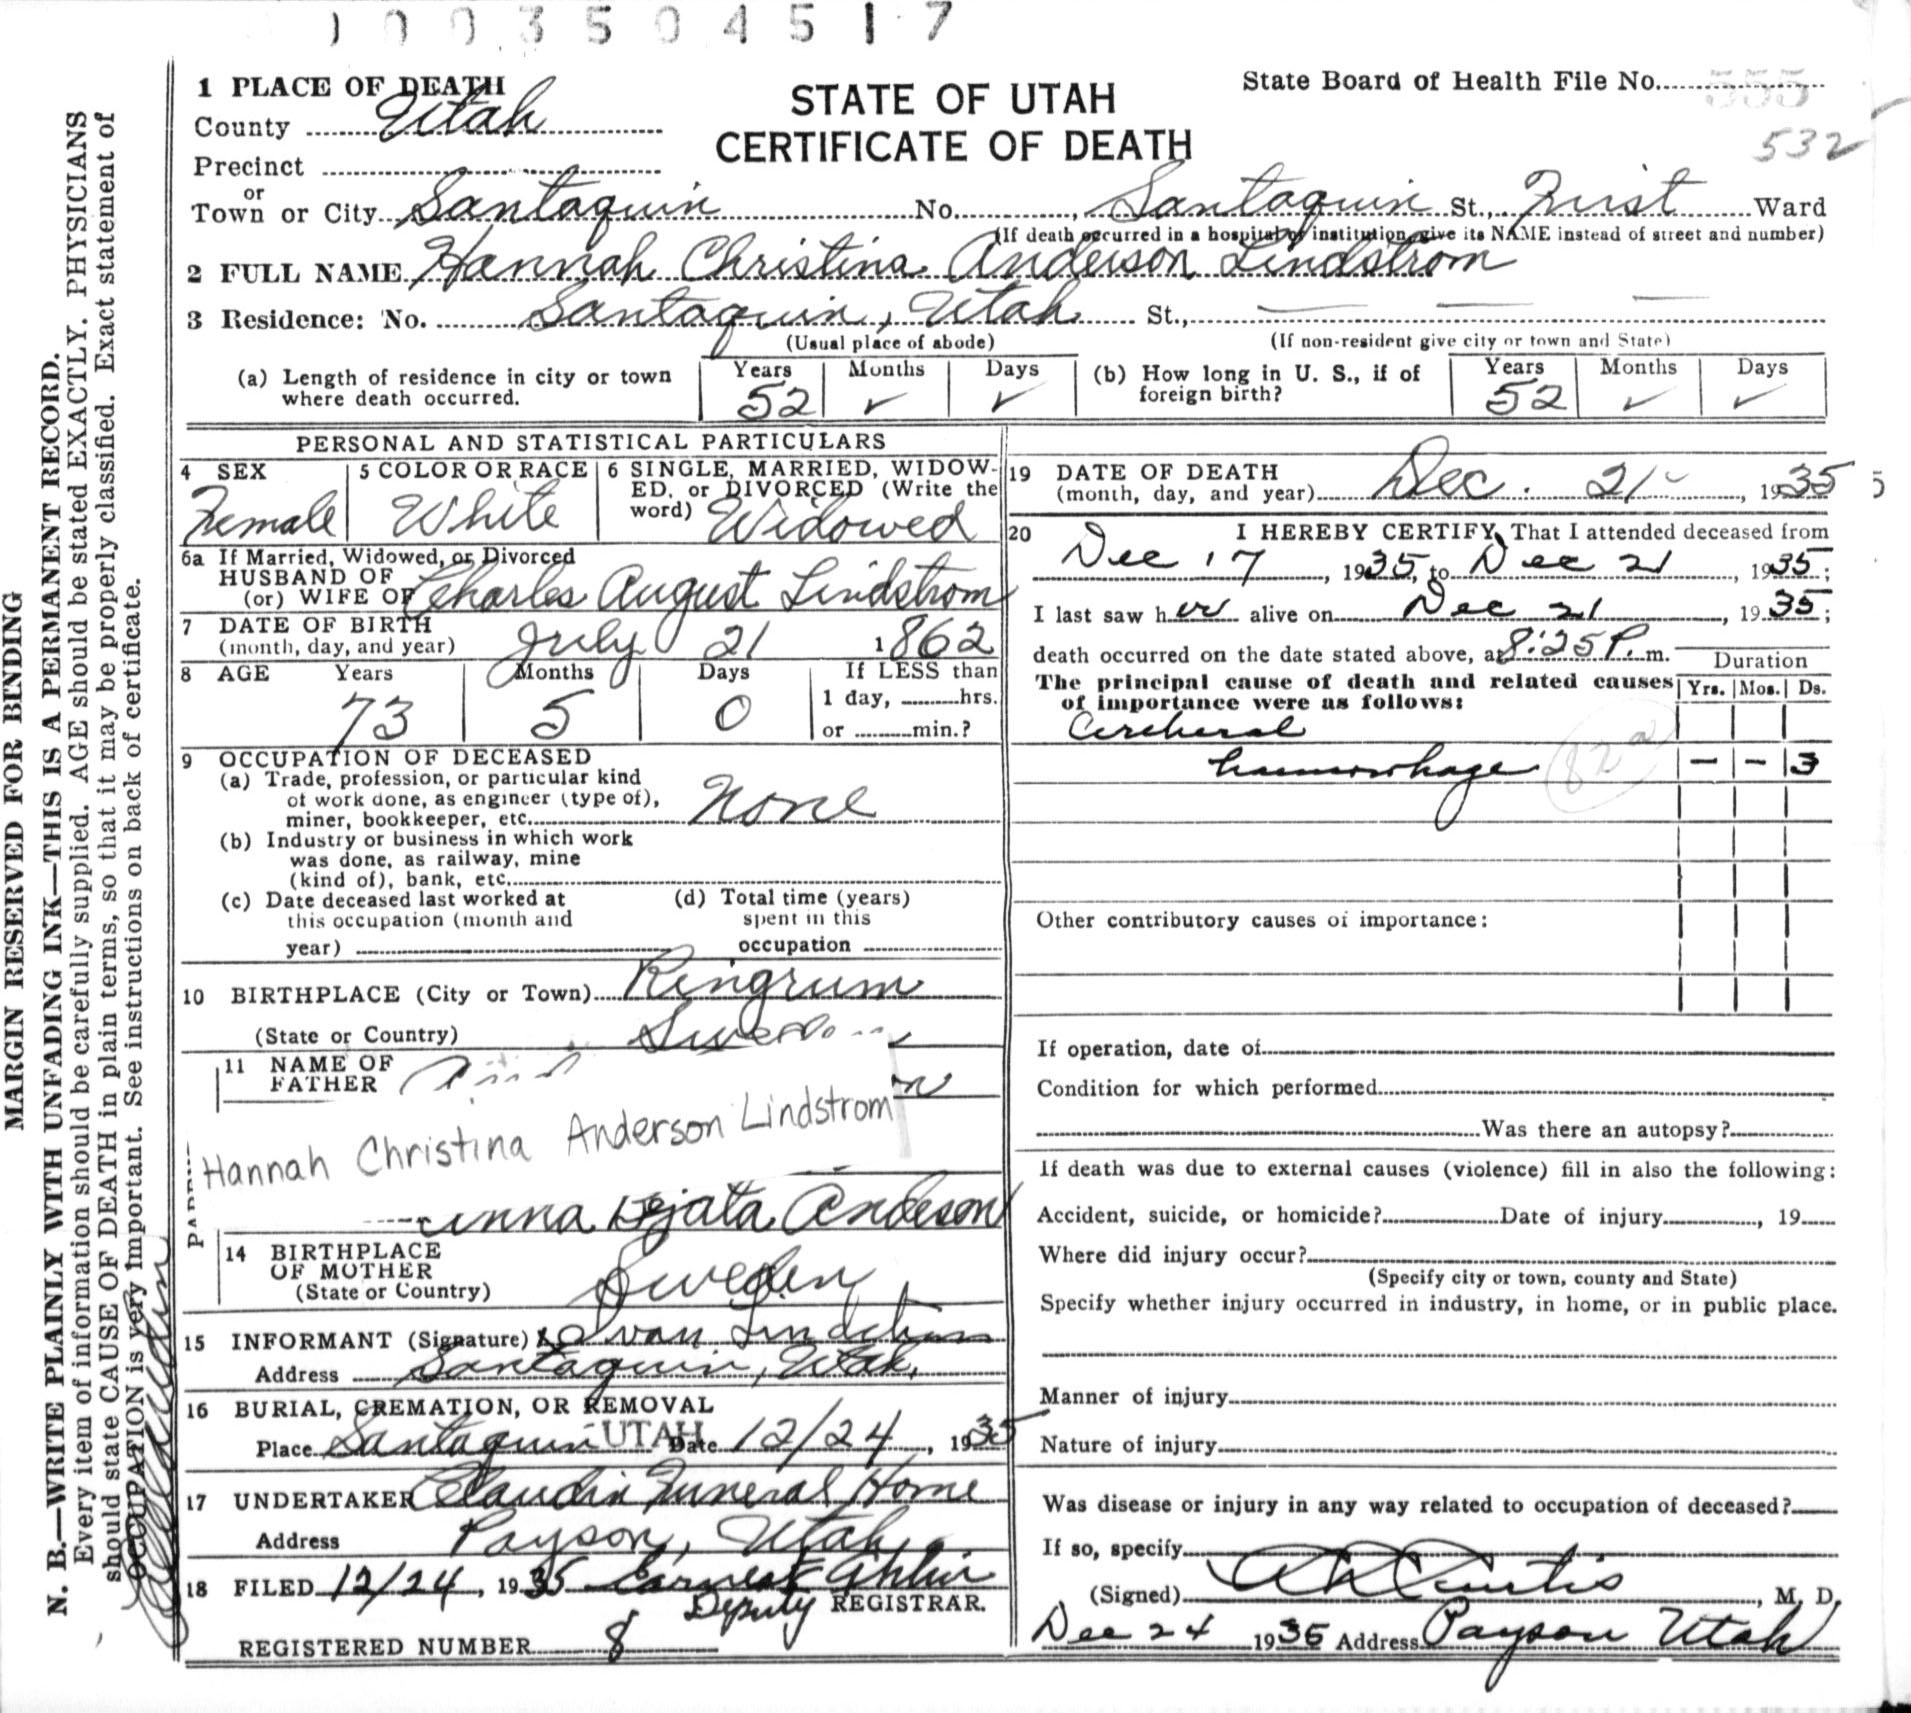 1003504517
1 PLACE OF DEATH
County Utah
STATE OF UTAH
CERTIFICATE OF DEATH
State Board of Health File No. 555
532
Precinct
or
Town or City Santaquin No. , Santaquin St., First Ward
(If death occurred in a hospital or institution, give its NAME instead of street and number)
2 FULL NAME Hannah Christina Anderson Lindstrom
3 Residence: No. Santaquin, Utah St.,
(Usual place of abode) (If non-resident give city or town and State)
(a) Length of residence in city or town where death occurred. Years 52 Months ✓ Days ✓
(b) How long in U. S., if of foreign birth? Years 52 Months ✓ Days ✓
PERSONAL AND STATISTICAL PARTICULARS
4 SEX Female
5 COLOR OR RACE White
6 SINGLE, MARRIED, WIDOW-
ED, or DIVORCED (Write the
word) Widowed
6a If Married, Widowed, or Divorced
HUSBAND OF
(or) WIFE OF Charles August Lindstrom
7 DATE OF BIRTH
(month, day, and year) July 21 1862
8 AGE Years 73 Months 5 Days 0
If LESS than
1 day, hrs.
or min.?
9 OCCUPATION OF DECEASED
(a) Trade, profession, or particular kind
of work done, as engineer (type of),
miner, bookkeeper, etc. None
(b) Industry or business in which work
was done, as railway, mine
(kind of), bank, etc.
(c) Date deceased last worked at
this occupation (month and
year)
(d) Total time (years)
spent in this
occupation
10 BIRTHPLACE (City or Town) Ringrum
(State or Country) Sweden
11 NAME OF
FATHER
Hannah Christina Anderson Lindstrom
Anna Anderson
14 BIRTHPLACE
OF MOTHER
(State or Country) Sweden
15 INFORMANT (Signature) Ivan Lindstrom
Address Santaquin, Utah.
16 BURIAL, CREMATION, OR REMOVAL
Place Santaquin UTAH Date 12/24, 1935
17 UNDERTAKER Claudin Funeral Home
Address Payson, Utah
18 FILED 12/24, 1935 Earnest
Deputy REGISTRAR.
REGISTERED NUMBER 8
19 DATE OF DEATH
(month, day, and year) Dec. 21, 1935
20 I HEREBY CERTIFY, That I attended deceased from
Dec 17, 1935, to Dec 21, 1935;
I last saw her alive on Dec 21, 1935;
death occurred on the date stated above, at 8:25 P. m.
The principal cause of death and related causes
of importance were as follows:
Duration
Yrs. Mos. Ds.
Cerebral
hemorrhage 82a - - 3
Other contributory causes of importance:
If operation, date of
Condition for which performed
Was there an autopsy?
If death was due to external causes (violence) fill in also the following:
Accident, suicide, or homicide? Date of injury , 19
Where did injury occur?
(Specify city or town, county and State)
Specify whether injury occurred in industry, in home, or in public place.
Manner of injury
Nature of injury
Was disease or injury in any way related to occupation of deceased?
If so, specify
(Signed) Curtis, M. D.
Dec 24 1935 Address Payson Utah
MARGIN RESERVED FOR BINDING
N. B.—WRITE PLAINLY WITH UNFADING INK—THIS IS A PERMANENT RECORD.
Every item of information should be carefully supplied. AGE should be stated EXACTLY. PHYSICIANS
should state CAUSE OF DEATH in plain terms, so that it may be properly classified. Exact statement of
OCCUPATION is very important. See instructions on back of certificate.